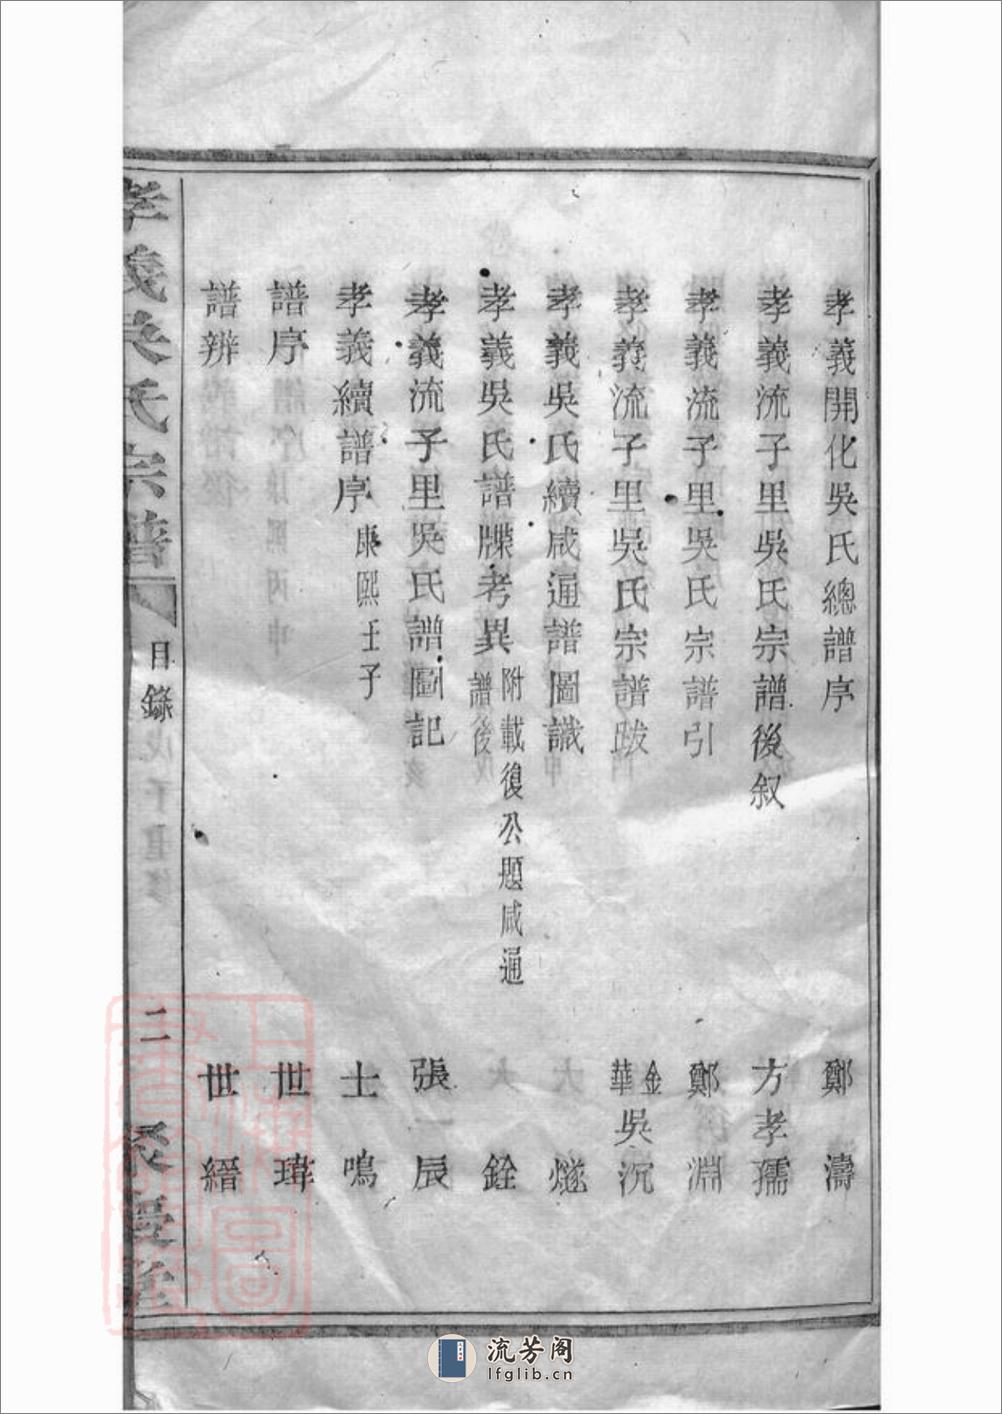 孝義開化吳氏總譜序 鄭濤
孝義流子里吳氏宗譜後叙 方孝孺
孝義流子里吳氏宗譜引 鄭淵
孝義流子里吳氏宗譜跋 金華吳沉
孝義吳氏續咸通譜圖識 大燧
孝義吳氏譜牒考異 附載復公題咸通譜後 大銓
孝義流子里吳氏譜圖記 張辰
孝義續譜序 康熙壬子 士鳴
譜序 世瑋
譜辨 世縉
孝義吳氏宗譜 目錄 二
上海圖書館藏
流芳阁
lfglib.cn